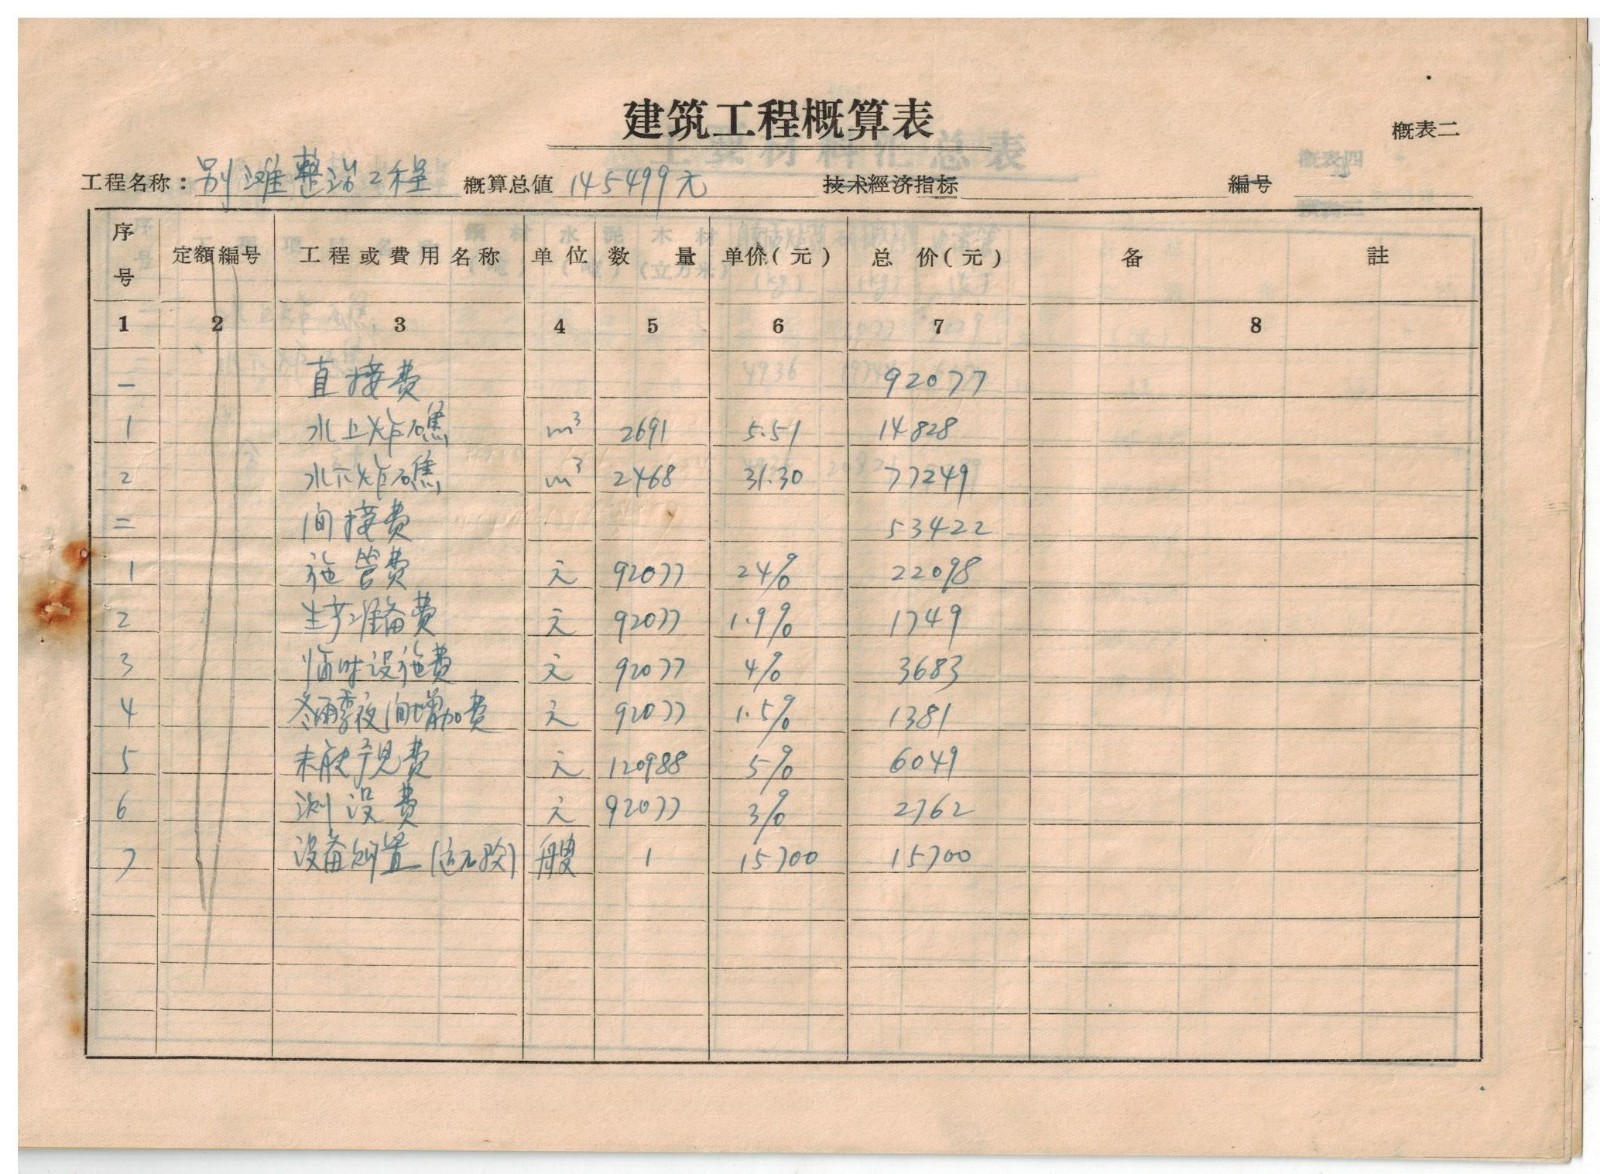 建筑工程概算表
概表二
工程名称：别滩整治工程 概算总值 145499元 技术經济指标 編号
序号 定額編号 工程或費用名称 单位 数量 单价(元) 总价(元) 备註
1 2 3 4 5 6 7 8
一 直接费 92077
1 水上炸礁 m³ 2691 5.51 14828
2 水下炸礁 m³ 2468 31.30 77249
二 间接费 53422
1 施管费 元 92077 24% 22098
2 生产准备费 元 92077 1.9% 1749
3 临时设施费 元 92077 4% 3683
4 冬雨季夜间增加费 元 92077 1.5% 1381
5 未能予见费 元 120988 5% 6049
6 测设费 元 92077 3% 2762
7 设备购置 艘 1 15700 15700